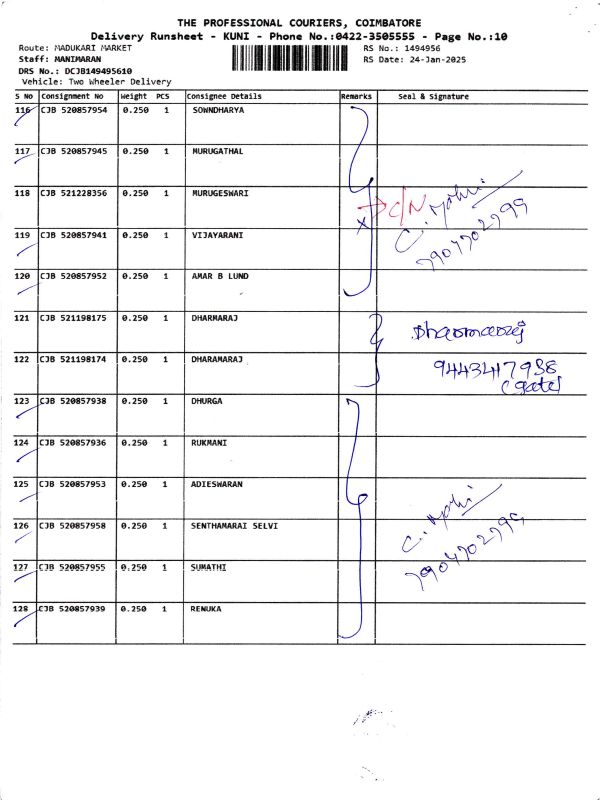 THE PROFESSIONAL COURIERS, COIMBATORE
Delivery Runsheet - KUNI - Phone No.:0422-3505555 - Page No.:10
Route: MADUKARI MARKET RS No.: 1494956
Staff: MANIMARAN RS Date: 24-Jan-2025
DRS No.: DCJB149495610
Vehicle: Two Wheeler Delivery
S No Consignment No Weight PCS Consignee Details Remarks Seal & Signature
116 CJB 520857954 0.250 1 SOWNDHARYA
117 CJB 520857945 0.250 1 MURUGATHAL
118 CJB 521228356 0.250 1 MURUGESWARI
C/N
7904702799
119 CJB 520857941 0.250 1 VIJAYARANI
120 CJB 520857952 0.250 1 AMAR B LUND
121 CJB 521198175 0.250 1 DHARMARAJ
Dharmaraj
122 CJB 521198174 0.250 1 DHARAMARAJ
9443417938
(gate)
123 CJB 520857938 0.250 1 DHURGA
124 CJB 520857936 0.250 1 RUKMANI
125 CJB 520857953 0.250 1 ADIESWARAN
126 CJB 520857958 0.250 1 SENTHAMARAI SELVI
7904702799
127 CJB 520857955 0.250 1 SUMATHI
128 CJB 520857939 0.250 1 RENUKA